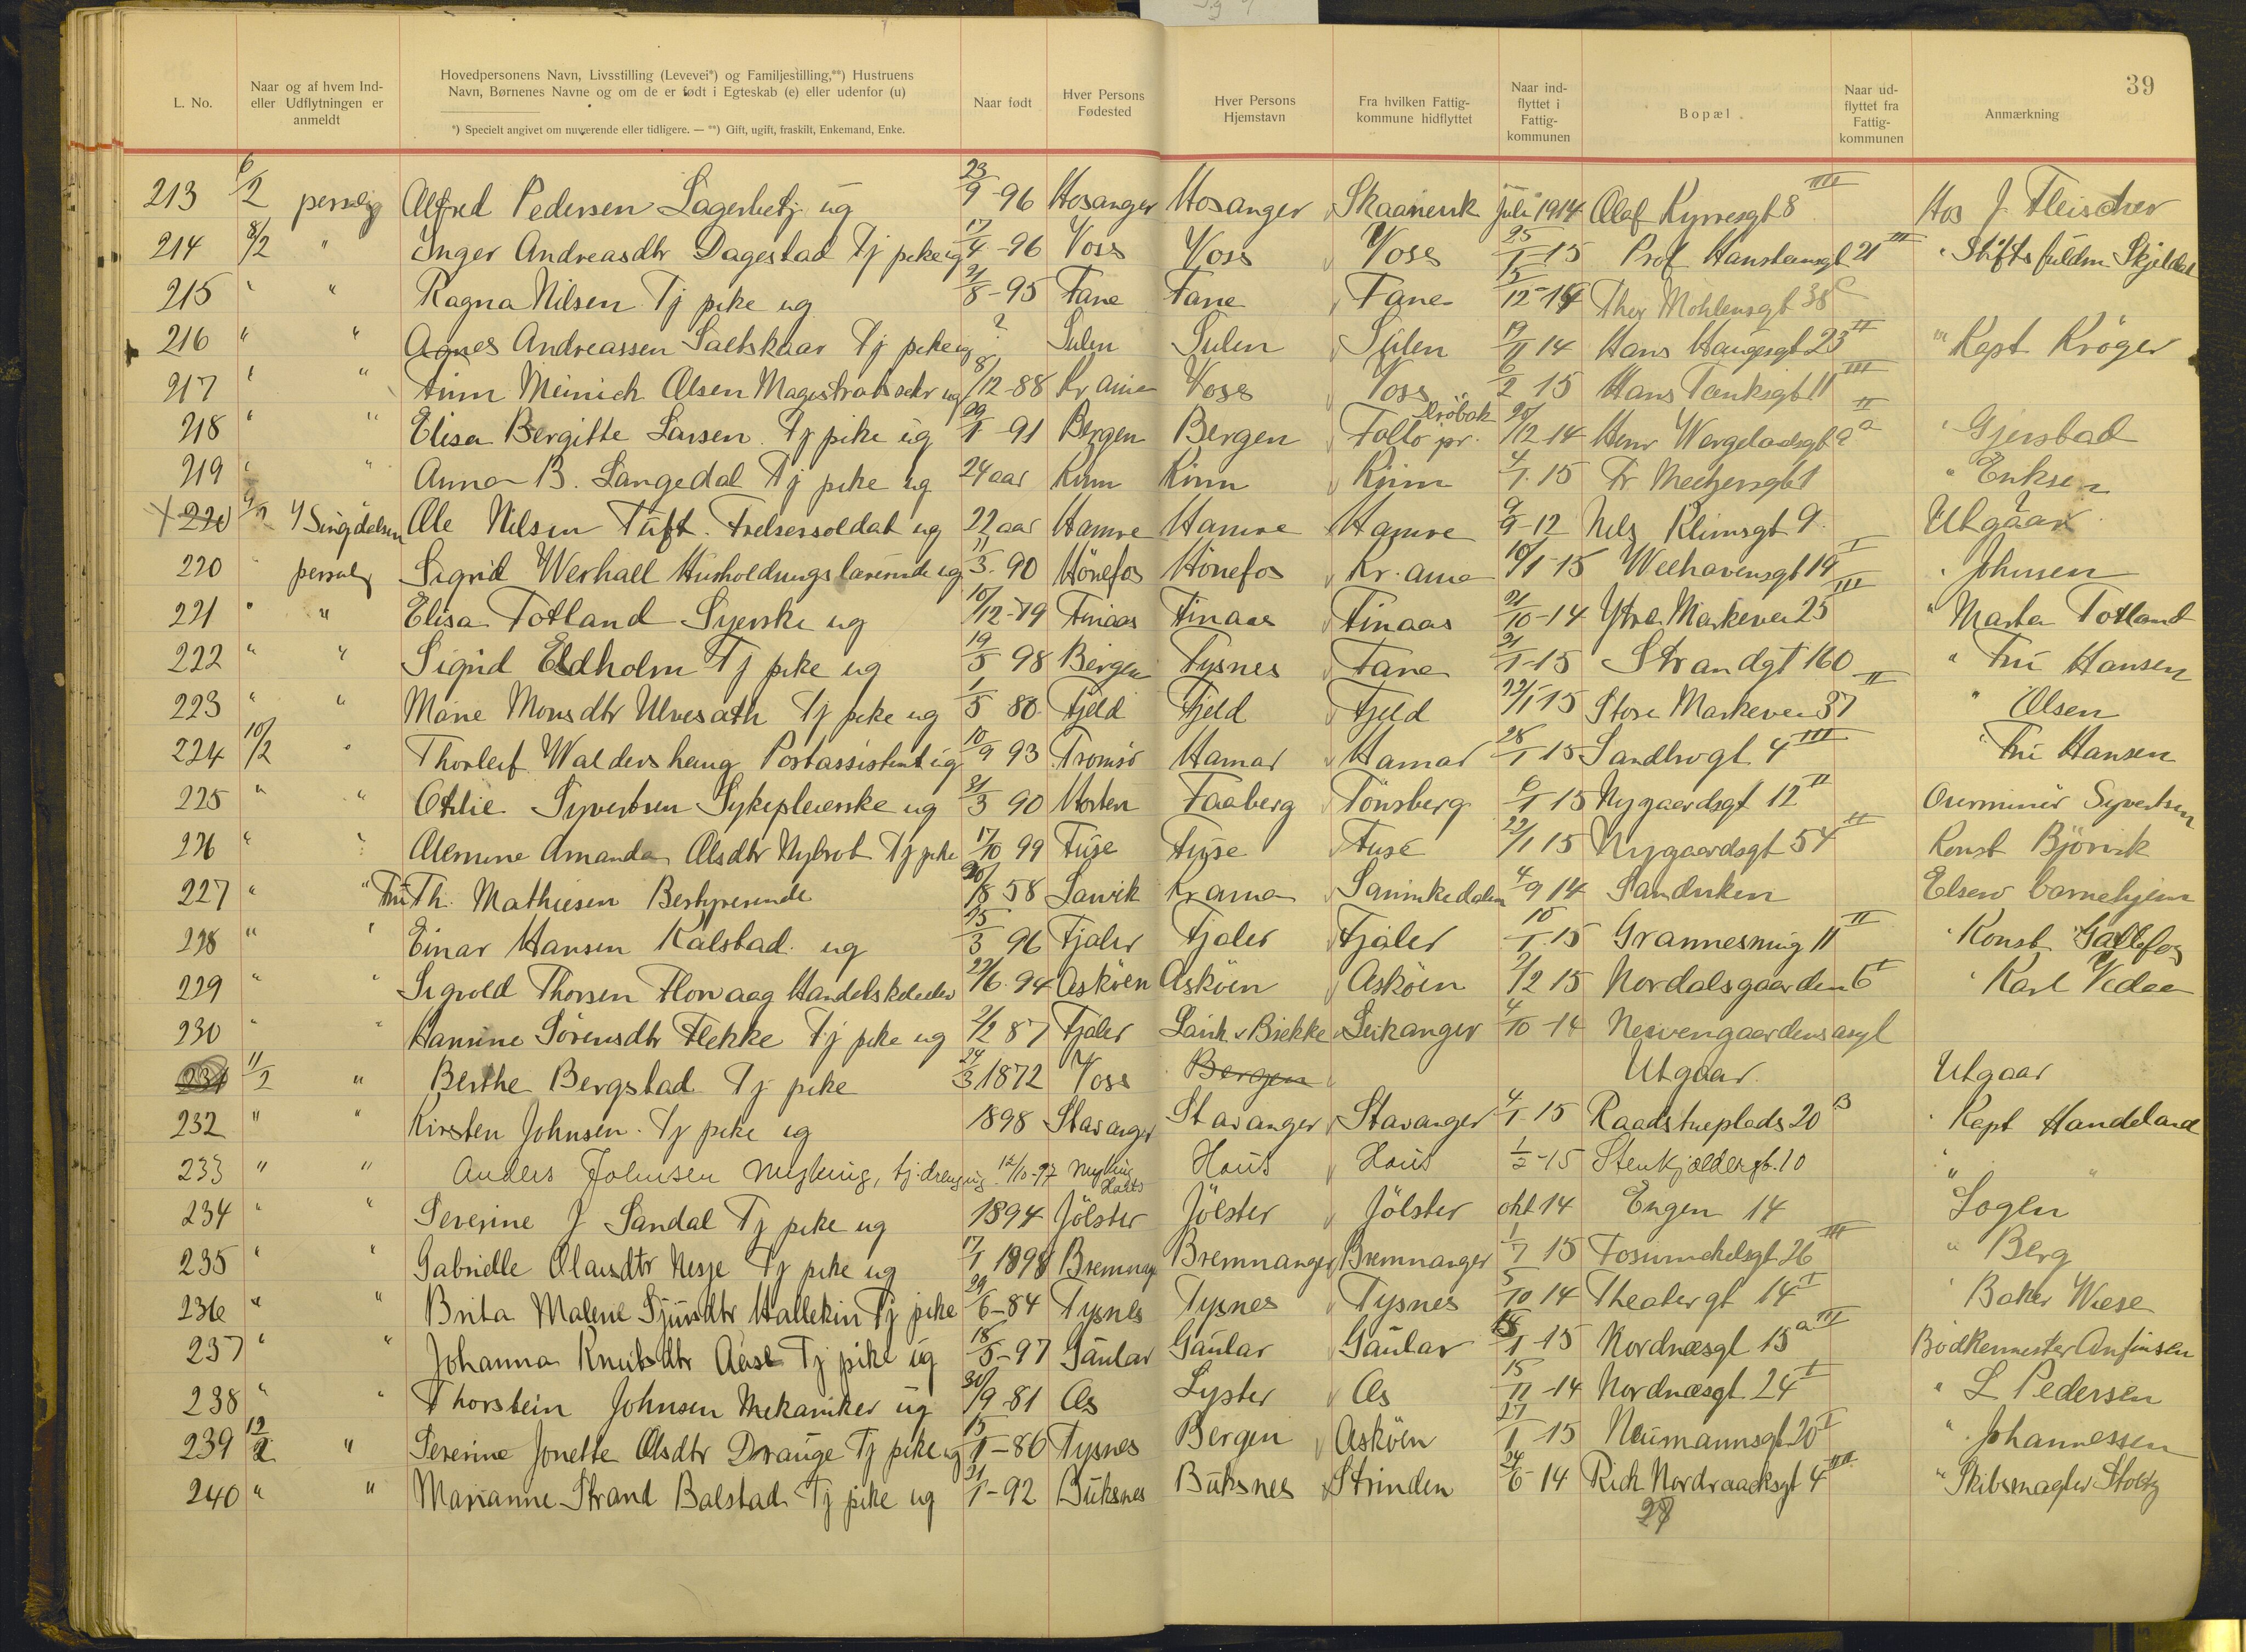 39
L. No. Naar og af hvem Ind- eller Udflytningen er anmeldt Hovedpersonens Navn, Livsstilling (Levevei*) og Familjestilling,**) Hustruens Navn, Børnenes Navne og om de er født i Egteskab (e) eller udenfor (u) Naar født Hver Persons Fødested Hver Persons Hjemstavn Fra hvilken Fattig- kommune hidflyttet Naar ind- flyttet i Fattig- kommunen Bopæl Naar ud- flyttet fra Fattig- kommunen Anmærkning
*) Specielt angivet om nuværende eller tidligere. — **) Gift, ugift, fraskilt, Enkemand, Enke.
213 6/2 personlig Alfred Pedersen Lagerbetj ug 23/9-96 Hosanger Hosanger Skaanevik juli 1914 Olaf Kyrresgt 8 III Hos J. Fleischer
214 8/2 " Inger Andreasdtr Dagestad Tj pike ug 17/4-96 Voss Voss Voss 25/1-15 Prof Hansteensgt 21 III " Stiftsfuldm Skjeldal
215 " " Ragna Nilsen Tj pike ug 21/8-95 Fane Fane Fane 15/12-14 Mohlensgt 38 c
216 " " Agnes Andreassen Saltskaar Tj pike ug ? Sulen Sulen Sulen 19/11 14 Hans Haugesgt 23 II " Kapt Kröger
217 " " Finn Meinich Olsen Magistratssekr ug 8/12-88 Kr ania Voss Voss 6/2 15 Hans Tanksgt 11 III
218 " " Elisa Bergitte Larsen Tj pike ug 29/1-91 Bergen Bergen Follo pr. Dröbak 20/12 14 Henr Wergelandsgt 2 a II " Gjerstad
219 " " Anna B. Langedal Tj pike ug 24 aar Kinn Kinn Kinn 4/1. 15 Fr Meltzersgt 1 " Eriksen
220 9/2 Ole Nilsen Tuft. Frelsersoldat ug 22 aar Hamre Hamre Hamre 9/9-12 Nels Klimsgt 9 Utgaar
220 " personlig Sigrid Werhall Husholdningslærerinde ug 11/3. 90 Hönefos Hönefos Kr. ania 10/1-15 Welhavensgt 19 I " Johnsen
221 " " Elisa Totland Syerske ug 10/12-79 Finaas Finaas Finaas 21/10-14 Ytre Markevei 25 III " Marta Totland
222 " " Sigrid Eldholm Tj pike ug 19/5 98 Bergen Tysnes Fane 21/1-15 Strandgt 160 " Fru Hansen
223 " " Marie Monsdtr Ulvesæth Tj pike ug 1/5 80. Fjeld Fjeld Fjeld 22/1 15 Store Markevei 37 II " Olsen
224 10/2 " Thorleif Waldershaug Postassistent ug 10/9 93 Tromsö Hamar Hamar 28/1 15 Sandbrogt 4 III " Fru Hansen
225 " " Othilie Syvertsen Sykepleierske ug 21/3 90 Horten Faaberg Tönsberg 6/1 15 Nygaardsgt 12 II Syvertsen
226 " " Amanda Olsdtr Nybrot Tj pike 17/10 99 Fuse Fuse Fuse 22/1 15 Nygaardsgt 54 II Konst Björvik
227 " " Fru Th. Mathiesen Bestyrerinde 20/8 58 Larvik Kr ania 4/9 14 Sandviken barnehjem
228 " " Einar Hansen Kalstad ug 25/3 96 Fjaler Fjaler Fjaler 10/1 15 Grannesmug 11 II " Konst
229 " " Sigvold Thorsen Florvaag Handelskoleelev 22/6. 94 Asköen Asköen Asköen 2/2 15 Nordalsgaarden 6 I " Karl Vedaa
230 " " Hansine Sörensdtr Flekke Tj pike ug 2/2 87 Fjaler Leikanger 4/10-14 asyl
231 11/2 " Berthe Bergstad Tj pike 24/3 1872 Voss Bergen Utgaar Utgaar
232 " " Kirsten Johnsen Tj pike ug 1898 Stavanger Stavanger Stavanger 4/1 15 Raadstueplads 20 B " Kapt Handeland
233 " " Anders Johnsen Myking, tj. dreng ug 12/10-97 Myking Haus Haus Haus 1/2-15 Stenkjeldergt. 10 " "
234 " " Severine J Sandal Tj pike ug 1894 Jölster Jölster Jölster okt 14 Engen 14 " Sogen
235 " " Gabrielle Olausdtr Nesje Tj pike ug 17/1 1898 Bremnanger Bremnanger Bremnanger 1/7 15 Fosswinckelsgt 26 III " Berg
236 " " Brita Malene Sjursdtr Hallekin Tj pike 29/6-84 Tysnes Tysnes Tysnes 5/10 14 Theatergt 14 I " Baker Wiese
237 " " Johanna Knutsdtr Aase Tj pike ug 18/5-97 Gaular Gaular Gaular 1-15 Nordnæsgt 15 a III Bödkermester Anfinsen
238 " " Thorstein Johnsen Mekaniker ug 30/9-81 Os Lyster Os 15/11-14 Nordnæsgt 24 I " L Pedersen
239 12/2 " Severine Jonette Olsdtr Drauge Tj pike ug 15/1-86 Tysnes Bergen Asköen 27/1-15 Neumannsgt 20 I " Johannessen
240 " " Marianne Strand Balstad Tj pike ug 21/1-92 Buksnes Buksnes Strinden 24/6-14 Rich Nordraacksgt 4 III " Skibsmægler Stoltz